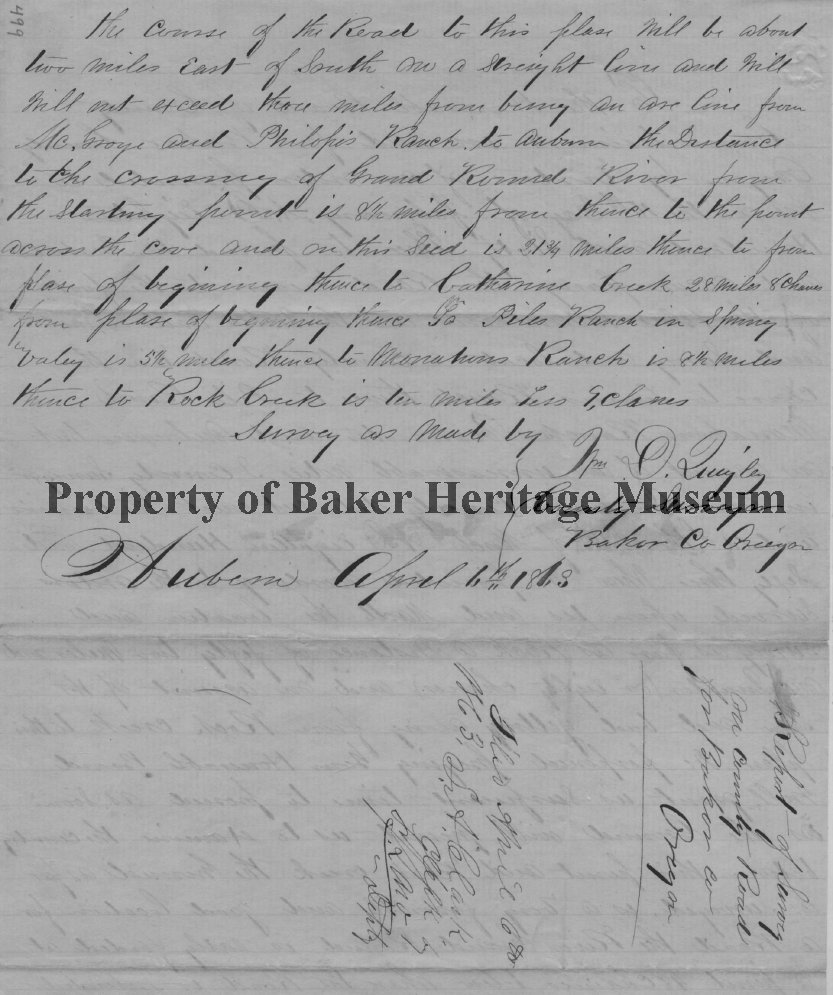 499
the course of the Road to this plase Will be about
two miles East of South on a streight line and Will
Will not exceed three miles from being an are line from
Mc. and Philops Ranch. to Auburn the Distance
to the crossing of Grand Round River from
the starting point is 8½ miles from thence to the point
across the cove and on this Sied is 21¾ miles thence to from
plase of begining thence to Catharine Creek 28 miles 8 Chanes
from plase of begining thence To Piles Ranch in Spring
valey is 5½ miles thence to Monahons Ranch is 8½ miles
thence to Rock Creek is ten miles less 9, chanes
Survey as Made by
Wm O. Quigley
Property of Baker Heritage Museum
County Surveyor
Baker Co Oregon
Auburn April 6th 1863
Report of Survey
on county Road
for Baker co
Oregon
Filed April 6th
1863, Clark
Clerk
Depty